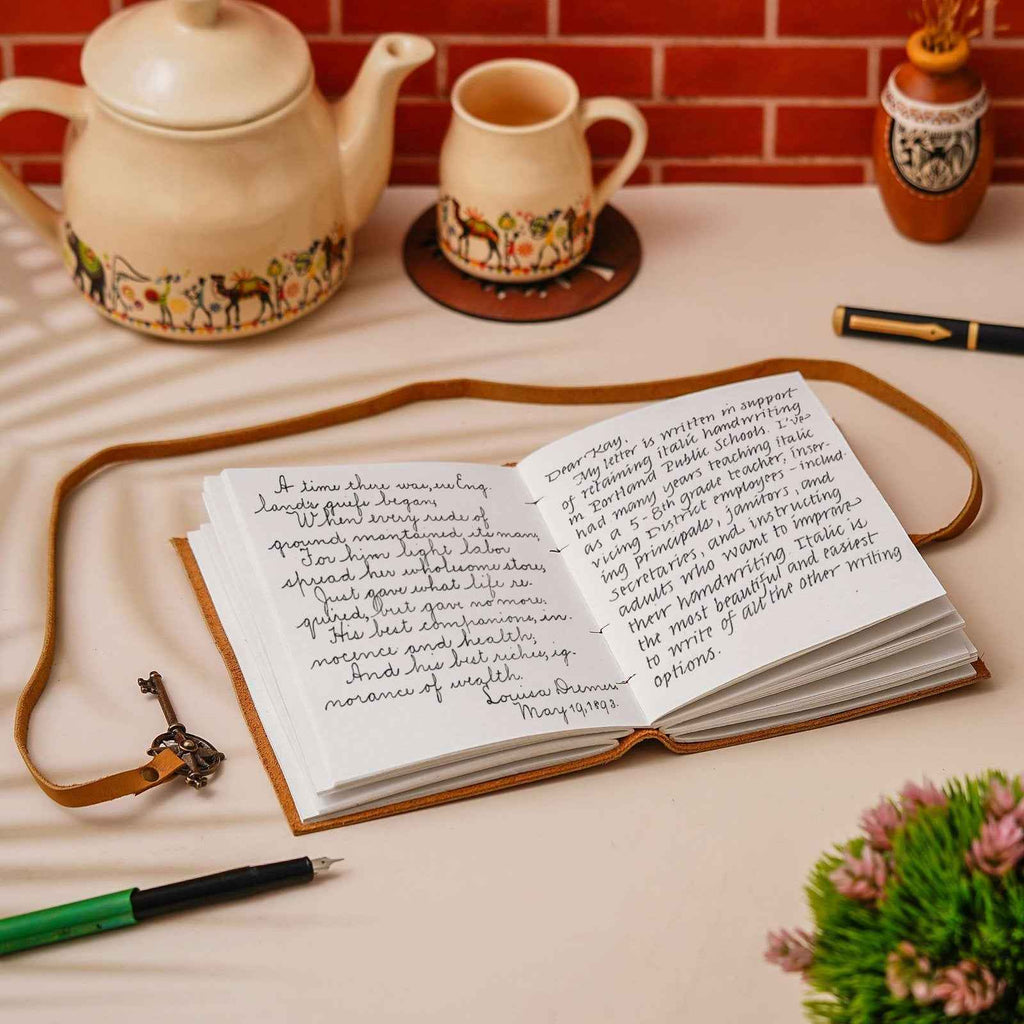 A time there was, ere Eng
lands griefs began,
When every rude of
ground maintained its man,
For him light labor
spread her wholesome store,
Just gave what life re-
quired, but gave no more.
His best companions, in-
nocence and health,
And his best riches, ig-
norance of wealth.
Louisa
May 19, 1893.
Dear Kay,
My letter is written in support
of retaining italic handwriting
in Portland Public Schools. I've
had many years teaching italic
as a 5-8th grade teacher, inser-
vicing District employees - includ-
ing principals, janitors, and
secretaries, and instructing
adults who want to improve
their handwriting. Italic is
the most beautiful and easiest
to write of all the other writing
options.